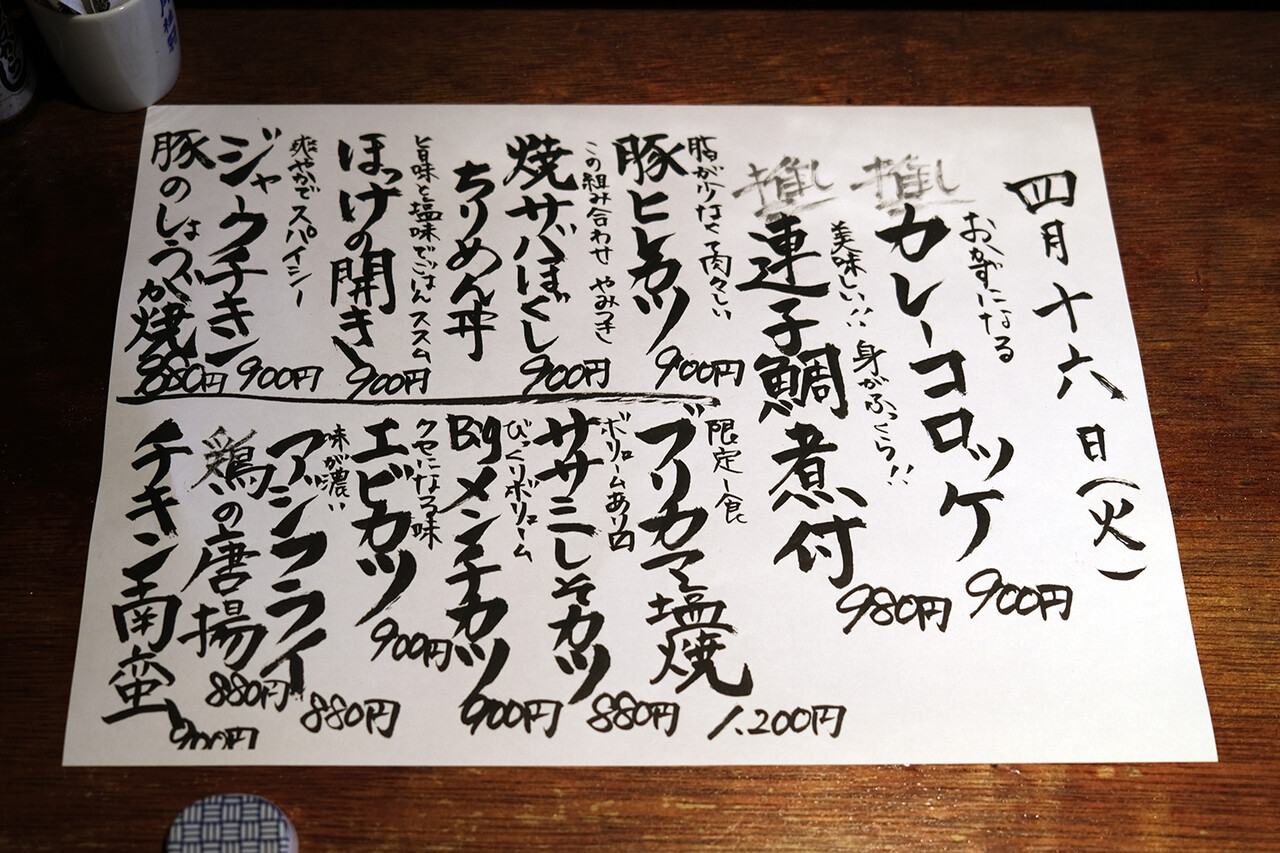 四月十六日(火)
おかずになる
推し カレーコロッケ 900円
美味しい!!身がふっくら!!
推し 連子鯛煮付 980円
脂が少なく肉々しい
豚ヒレカツ 900円
この組み合わせ やみつき
焼サバほぐし
ちりめん丼 900円
旨味と塩味でごはんススム
ほっけの開き 900円
爽やかでスパイシー
ジャークチキン 900円
豚のしょうが焼 880円
限定一食
ブリカマ塩焼 1.200円
ボリュームあり凶
ササミしそカツ 880円
びっくりボリューム
Bigメンチカツ 900円
クセになる味
エビカツ 900円
味が濃い
アジフライ 880円
鶏の唐揚 880円
チキン南蛮 900円